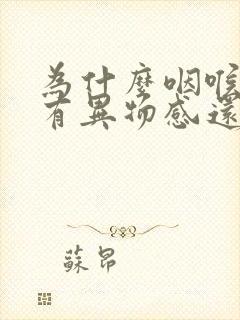 為什麼咽喉
有異物感還
蘇昂